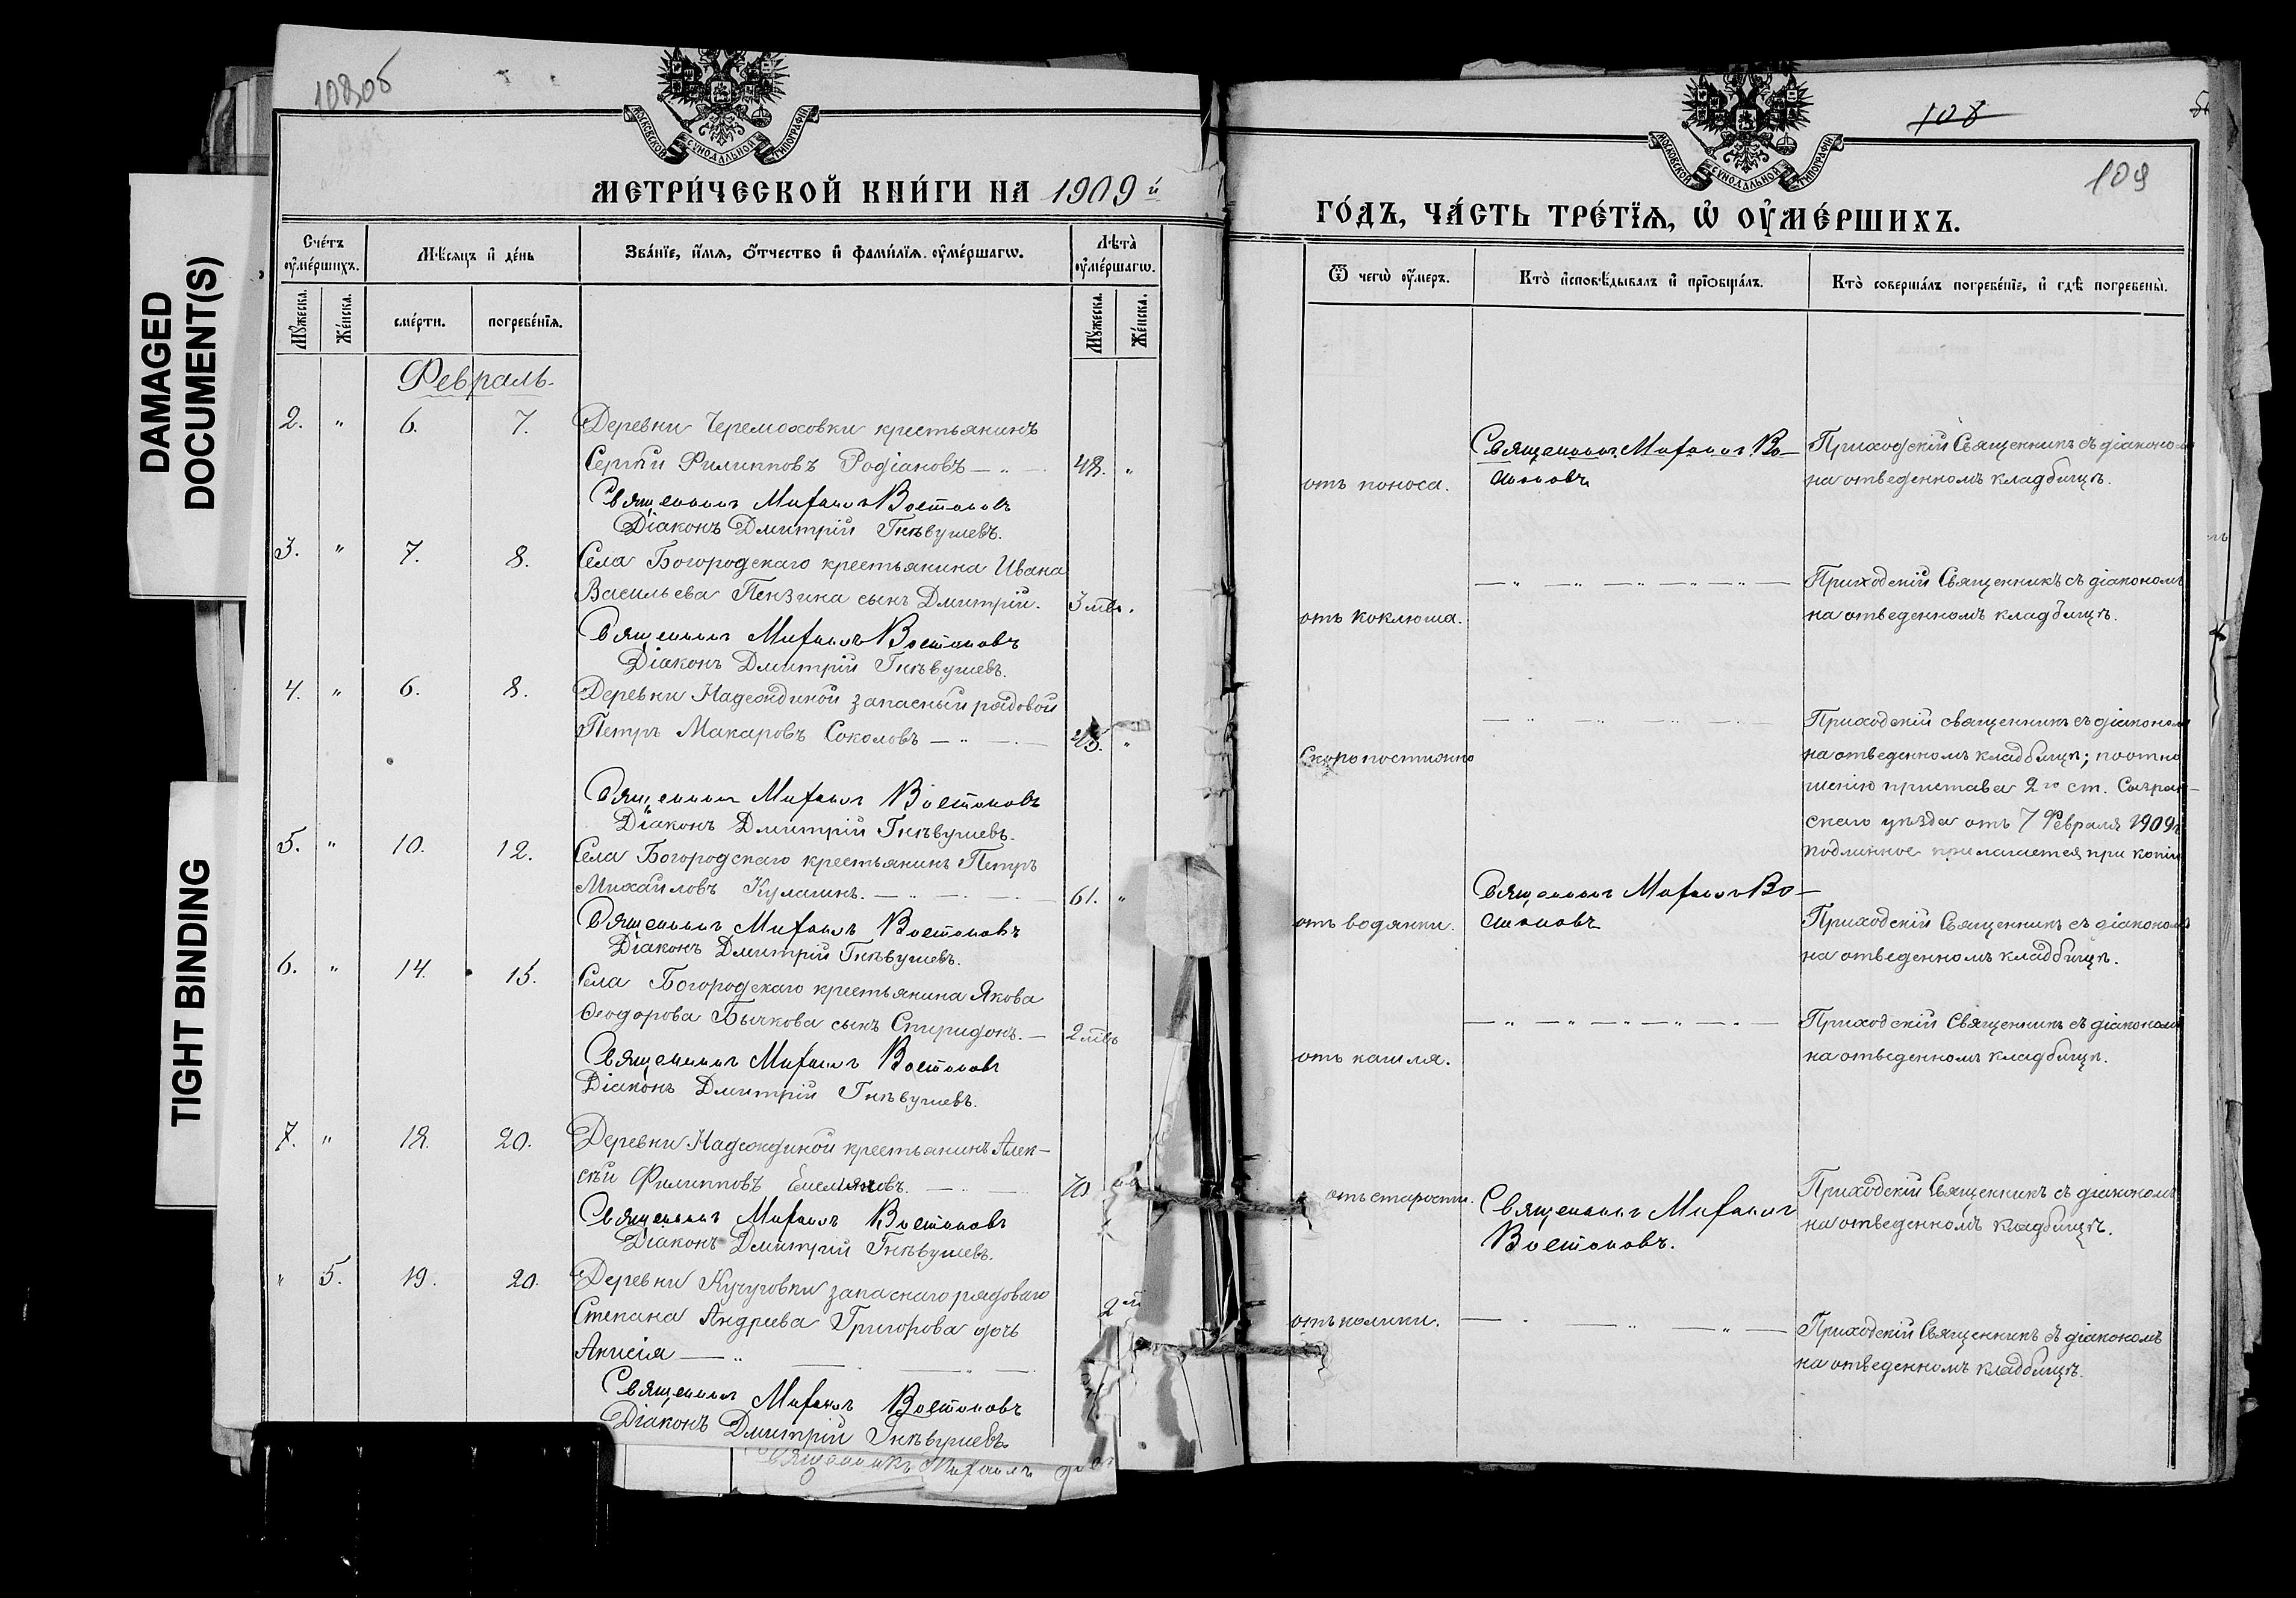 DAMAGED
DOCUMENT(S)
TIGHT BINDING
108об
МОСКОВСКОЙ СѴНОДАЛЬНОЙ ТИПОГРАФІИ
МЕТРИ́ЧЕСКОЙ КНИ́ГИ НА 1909й
Сче́тъ оу҆ме́ршихъ.
Мѣ́сяцъ и҆ де́нь
Зва́нїе, и҆́мя, ѻ҆́тчество и҆ фами́лїя оу҆ме́ршагѡ.
Лѣ́та оу҆ме́ршагѡ.
Мꙋ́жеска.
Же́нска.
сме́рти.
погребе́нїя.
Мꙋ́жеска.
Же́нска.
Февраль.
2. " 6. 7. Деревни Черемоховки крестьянинъ
Сергѣй Филипповъ Родіановъ — " — 48. "
Священникъ Михаилъ Востоковъ
Діаконъ Дмитрій Гнѣвушевъ.
3. " 7. 8. Села Богородскаго крестьянина Ивана
Васильева Пензина сынъ Дмитрій. 3 мѣс.
Священникъ Михаилъ Востоковъ
Діаконъ Дмитрій Гнѣвушевъ.
4. " 6. 8. Деревни Надеждиной запасный рядовой
Петръ Макаровъ Соколовъ — " — "
Священникъ Михаилъ Востоковъ
Діаконъ Дмитрій Гнѣвушевъ.
5. " 10. 12. Села Богородскаго крестьянинъ Петръ
Михайловъ Кулагинъ. — " — 61. "
Священникъ Михаилъ Востоковъ
Діаконъ Дмитрій Гнѣвушевъ.
6. " 14. 15. Села Богородскаго крестьянина Якова
Ѳеодорова Бычкова сынъ Спиридонъ. — 2 мѣс
Священникъ Михаилъ Востоковъ
Діаконъ Дмитрій Гнѣвушевъ.
7. " 18. 20. Деревни Надеждиной крестьянинъ Алек-
сѣй Филипповъ Емельяновъ. — " — 70
Священникъ Михаилъ Востоковъ
Діаконъ Дмитрій Гнѣвушевъ.
" 5. 19. 20. Деревни Кучуговки запаснаго рядоваго
Степана Андреева Григорова дочь 2 м
Анисія — "
Священникъ Михаилъ Востоковъ
Діаконъ Дмитрій Гнѣвушевъ.
Священникъ Михаилъ
108
109
МОСКОВСКОЙ СѴНОДАЛЬНОЙ ТИПОГРАФІИ
ГО́ДЪ, ЧА́СТЬ ТРЕ́ТЇѦ, Ѡ҆ ОУ҆МЕ́РШИХЪ.
Ѿ чегѡ̀ оу҆́меръ.
Кто̀ и҆сповѣ́дывалъ и҆ прїѻбща́лъ.
Кто̀ соверша́лъ погребе́нїе, и҆ гдѣ̀ погребены̀.
отъ поноса.
Священникъ Михаилъ Во-
стоковъ
Приходскій Священникъ съ діакономъ
на отведенномъ кладбищѣ.
отъ коклюша.
— " — " — " — " — " —
Приходскій Священникъ съ діакономъ
на отведенномъ кладбищѣ.
Скоропостижно
— " — " — " —
Приходскій священникъ съ діакономъ
на отведенномъ кладбищѣ; по отно
шенію пристава 2го ст. Сызран-
скаго уѣзда отъ 7 Февраля 1909г
подлинное прилагается при копіи
отъ водянки.
Священникъ Михаилъ Во-
стоковъ
Приходскій Священникъ съ діакономъ
на отведенномъ кладбищѣ.
отъ кашля.
— " — " — " — " — " —
Приходскій Священникъ съ діакономъ
на отведенномъ кладбищѣ.
отъ старости.
Священникъ Михаилъ
Востоковъ.
Приходскій Священникъ съ діакономъ
на отведенномъ кладбищѣ.
отъ колики.
— " — " — " —
Приходскій Священникъ съ діакономъ
на отведенномъ кладбищѣ.